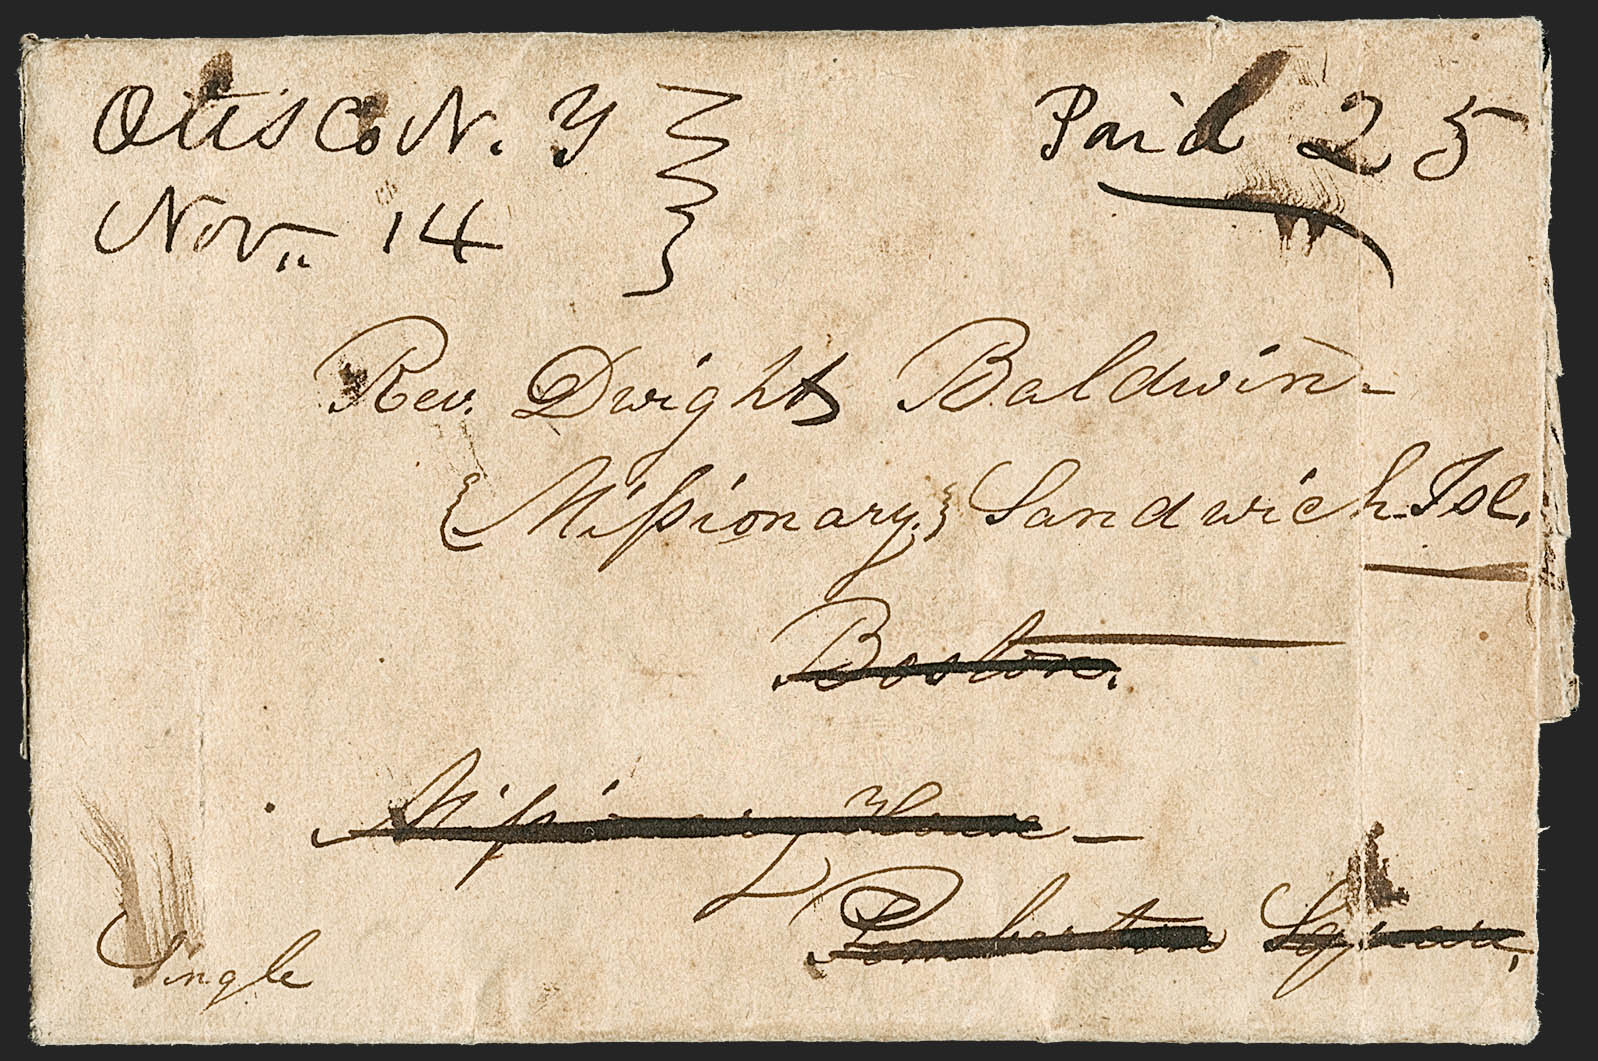 Otisco N. Y
Paid 25
Nov,, 14
Rev. Dwight Baldwin-
{Missionary,} Sandwich Isl.
Boston.
Missionary House-
Pemberton Square,
Single